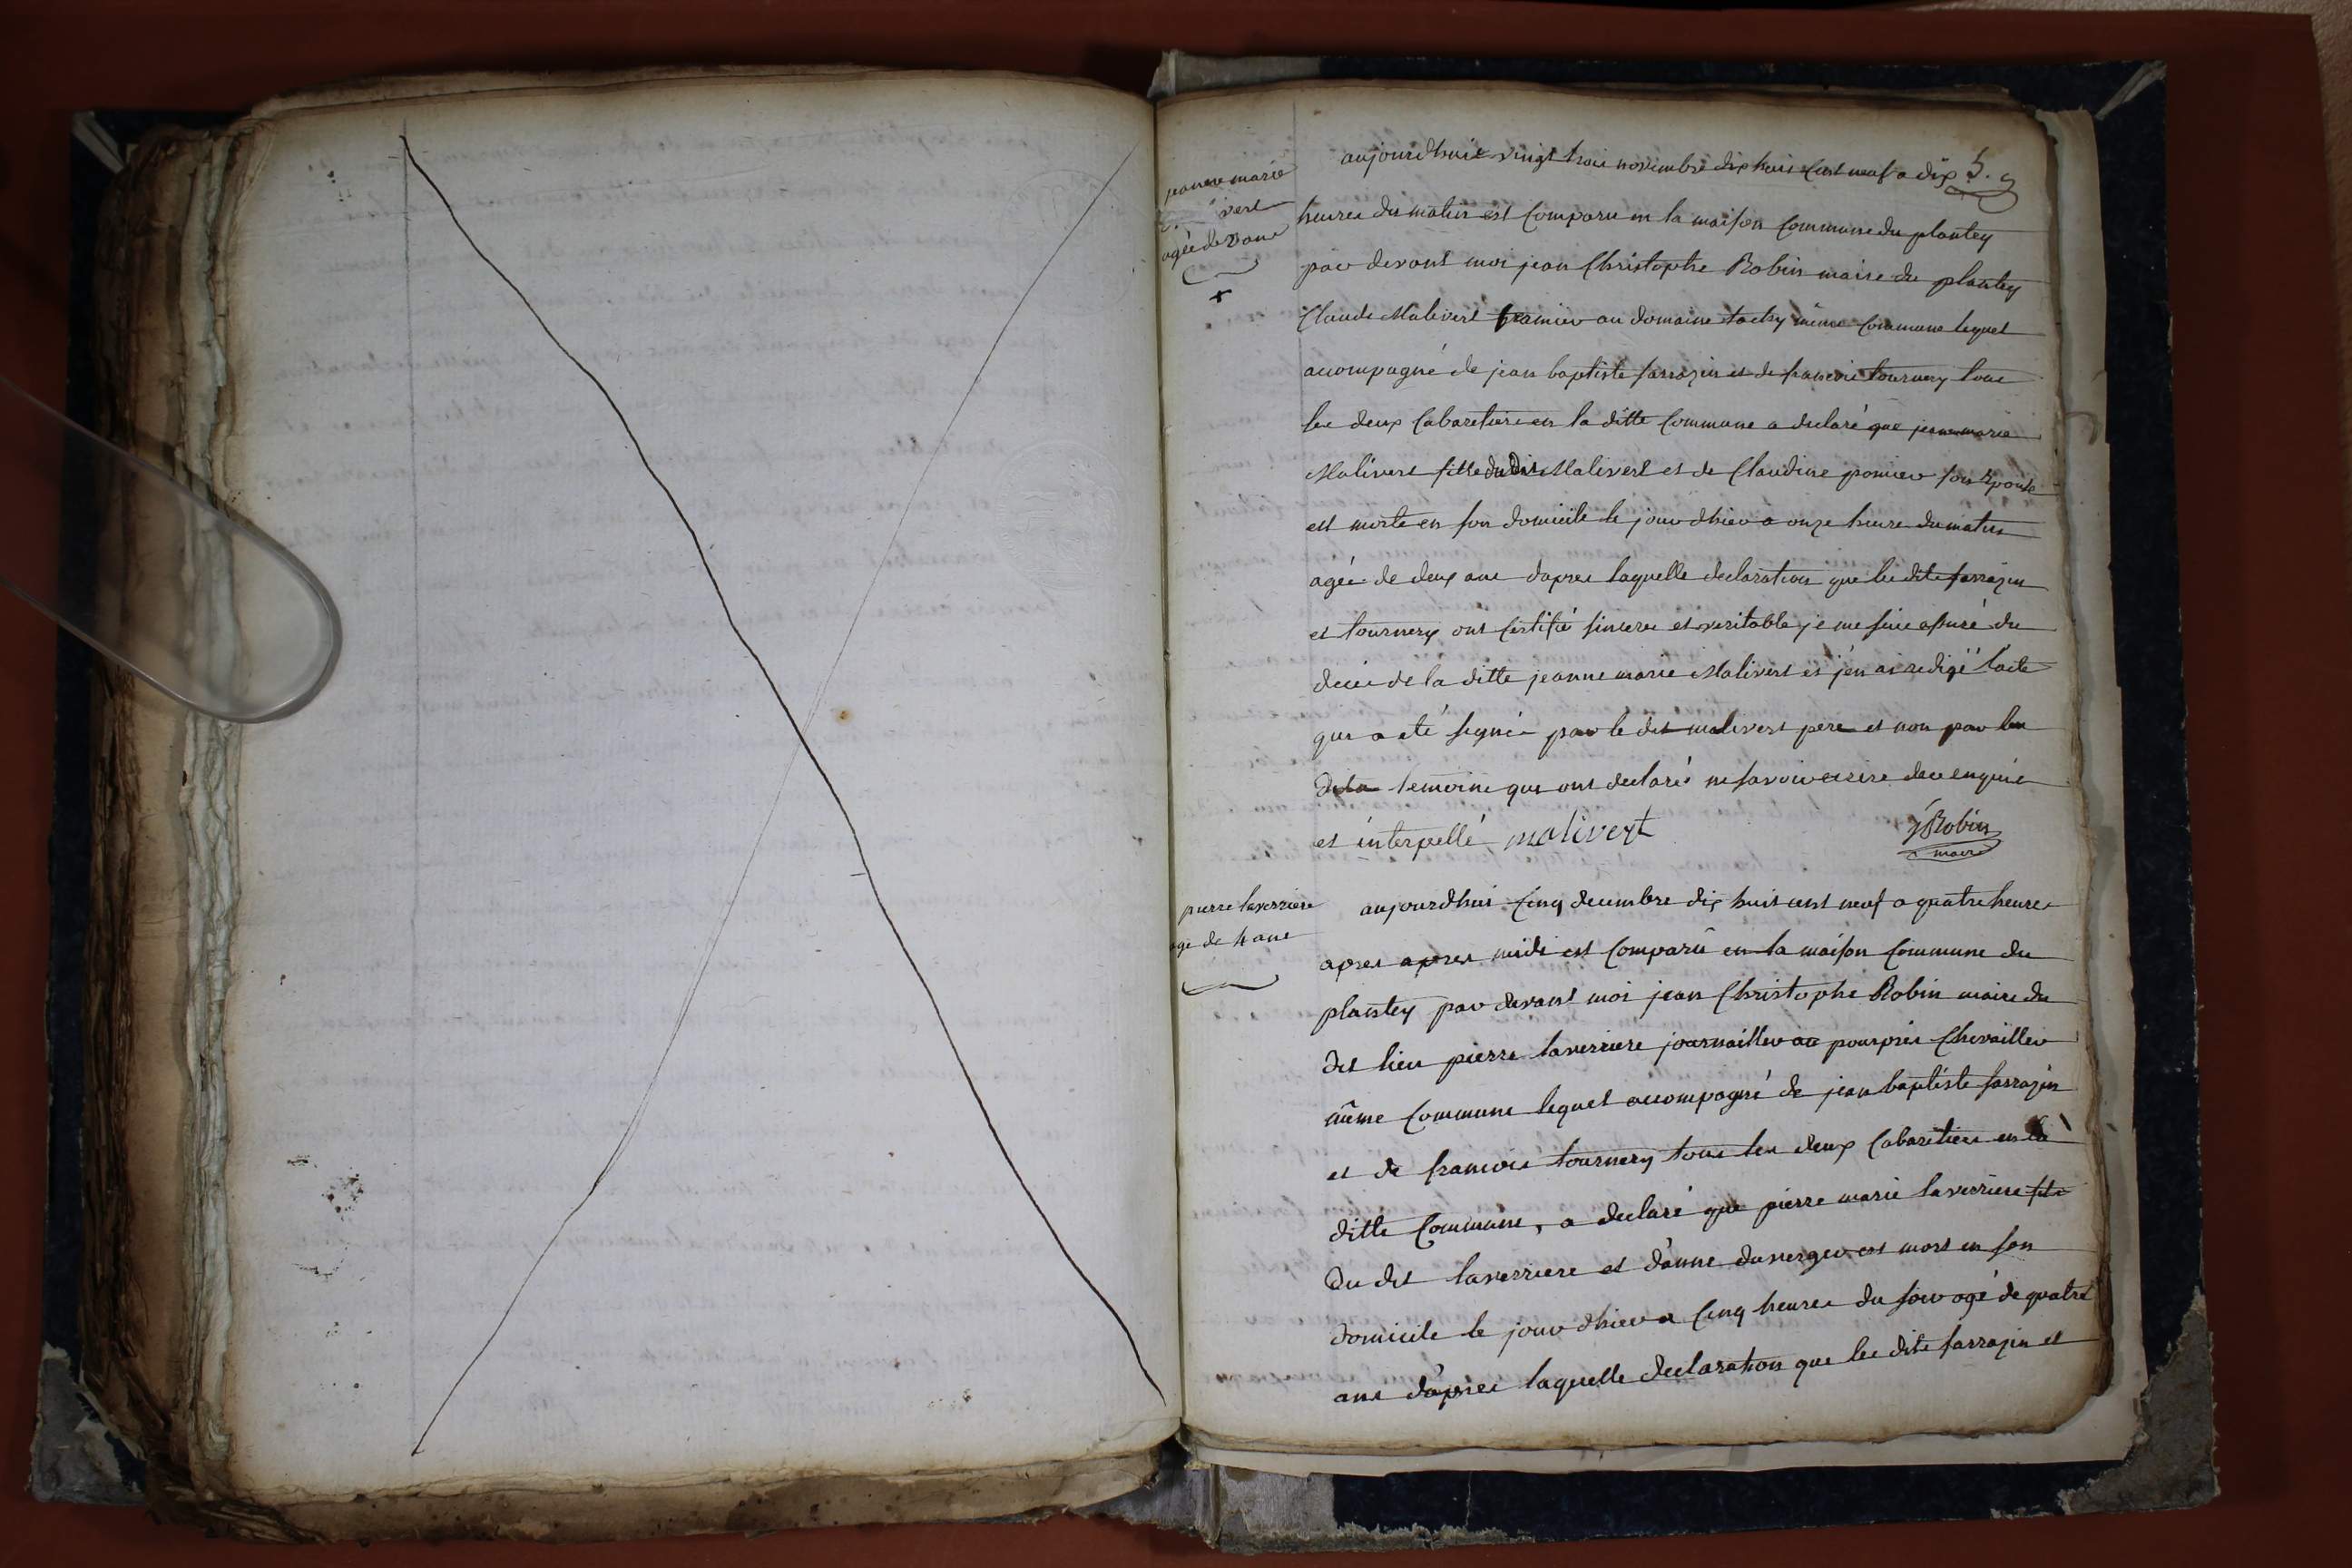 jeanne marie
vert
agée de 2 ans
aujourdhuit vingt trois novembre dix huit cent neuf a dix 5.
heures du matin est comparu en la maison commune du plantey
par devant moi jean Christophe Robin maire du plantey
Claude Malivert au domaine même commune lequel
accompagné de jean baptiste sarrazin et de francois tournery tous
les deux cabaretiers en la ditte commune a declaré que jeanne marie
Malivert fille du dit Malivert et de Claudine pomier son Epouse
est morte en son domicile le jour dhier a onze heure du matin
agée de deux ans daprès laquelle declaration que les dits sarrazin
et tournery ont certifié sincere et veritable je me suis assuré du
decès de la ditte jeanne marie Malivert et j'en ai redigé l'acte
qui a été signé par le dit malivert pere et non par les
dits temoins qui ont declaré ne savoir ecrire de ce enquis
et interpellé malivert JRobin
maire
pierre laverriere
agé de 4 ans
aujourdhui cinq decembre dix huit cent neuf a quatre heures
apres apres midi est comparu en la maison commune du
plantey par devant moi jean Christophe Robin maire du
dit lieu pierre laverriere journaillier au pourpris Chevaillier
même commune lequel accompagné de jean baptiste sarrazin
et de francois tournery tous les deux cabaretiers en la
ditte commune, a declaré que pierre marie laverriere fils
du dit laverriere et d'anne duverger est mort en son
domicile le jour dhier a cinq heures du soir agé de quatre
ans d'après laquelle declaration que les dits sarrazin et